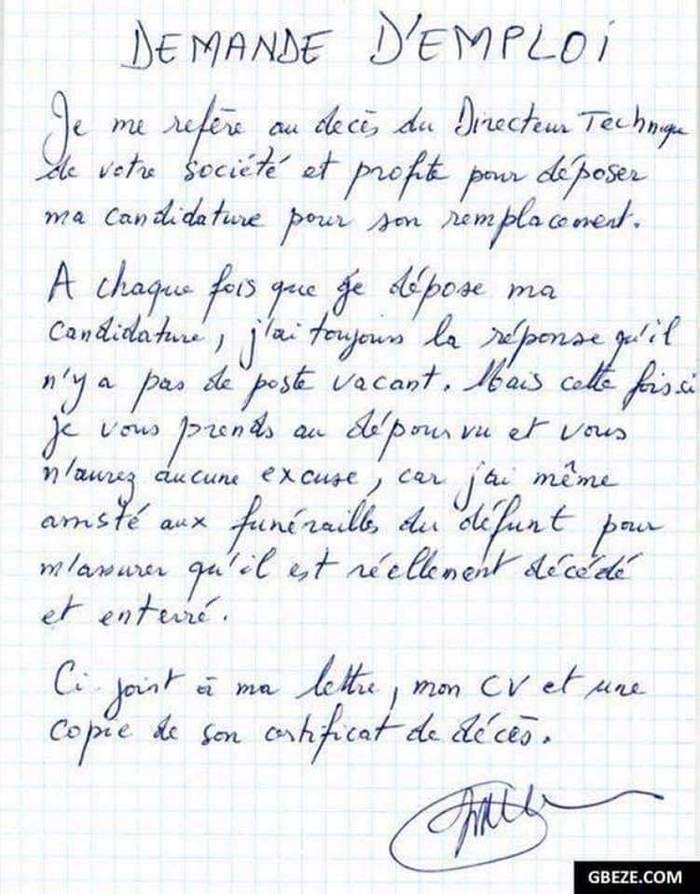 DEMANDE D'EMPLOI
Je me refère au decès du Directeur Technique
de votre société et profite pour déposer
ma candidature pour son remplacement.
A chaque fois que je dépose ma
candidature, j'ai toujours la réponse qu'il
n'y a pas de poste vacant. Mais cette fois ci
je vous prends au dépourvu et vous
n'aurez aucune excuse, car j'ai même
assisté aux funérailles du défunt pour
m'assurer qu'il est réellement décédé
et enterré.
Ci-joint à ma lettre, mon CV et une
copie de son certificat de décès.
GBEZE.COM